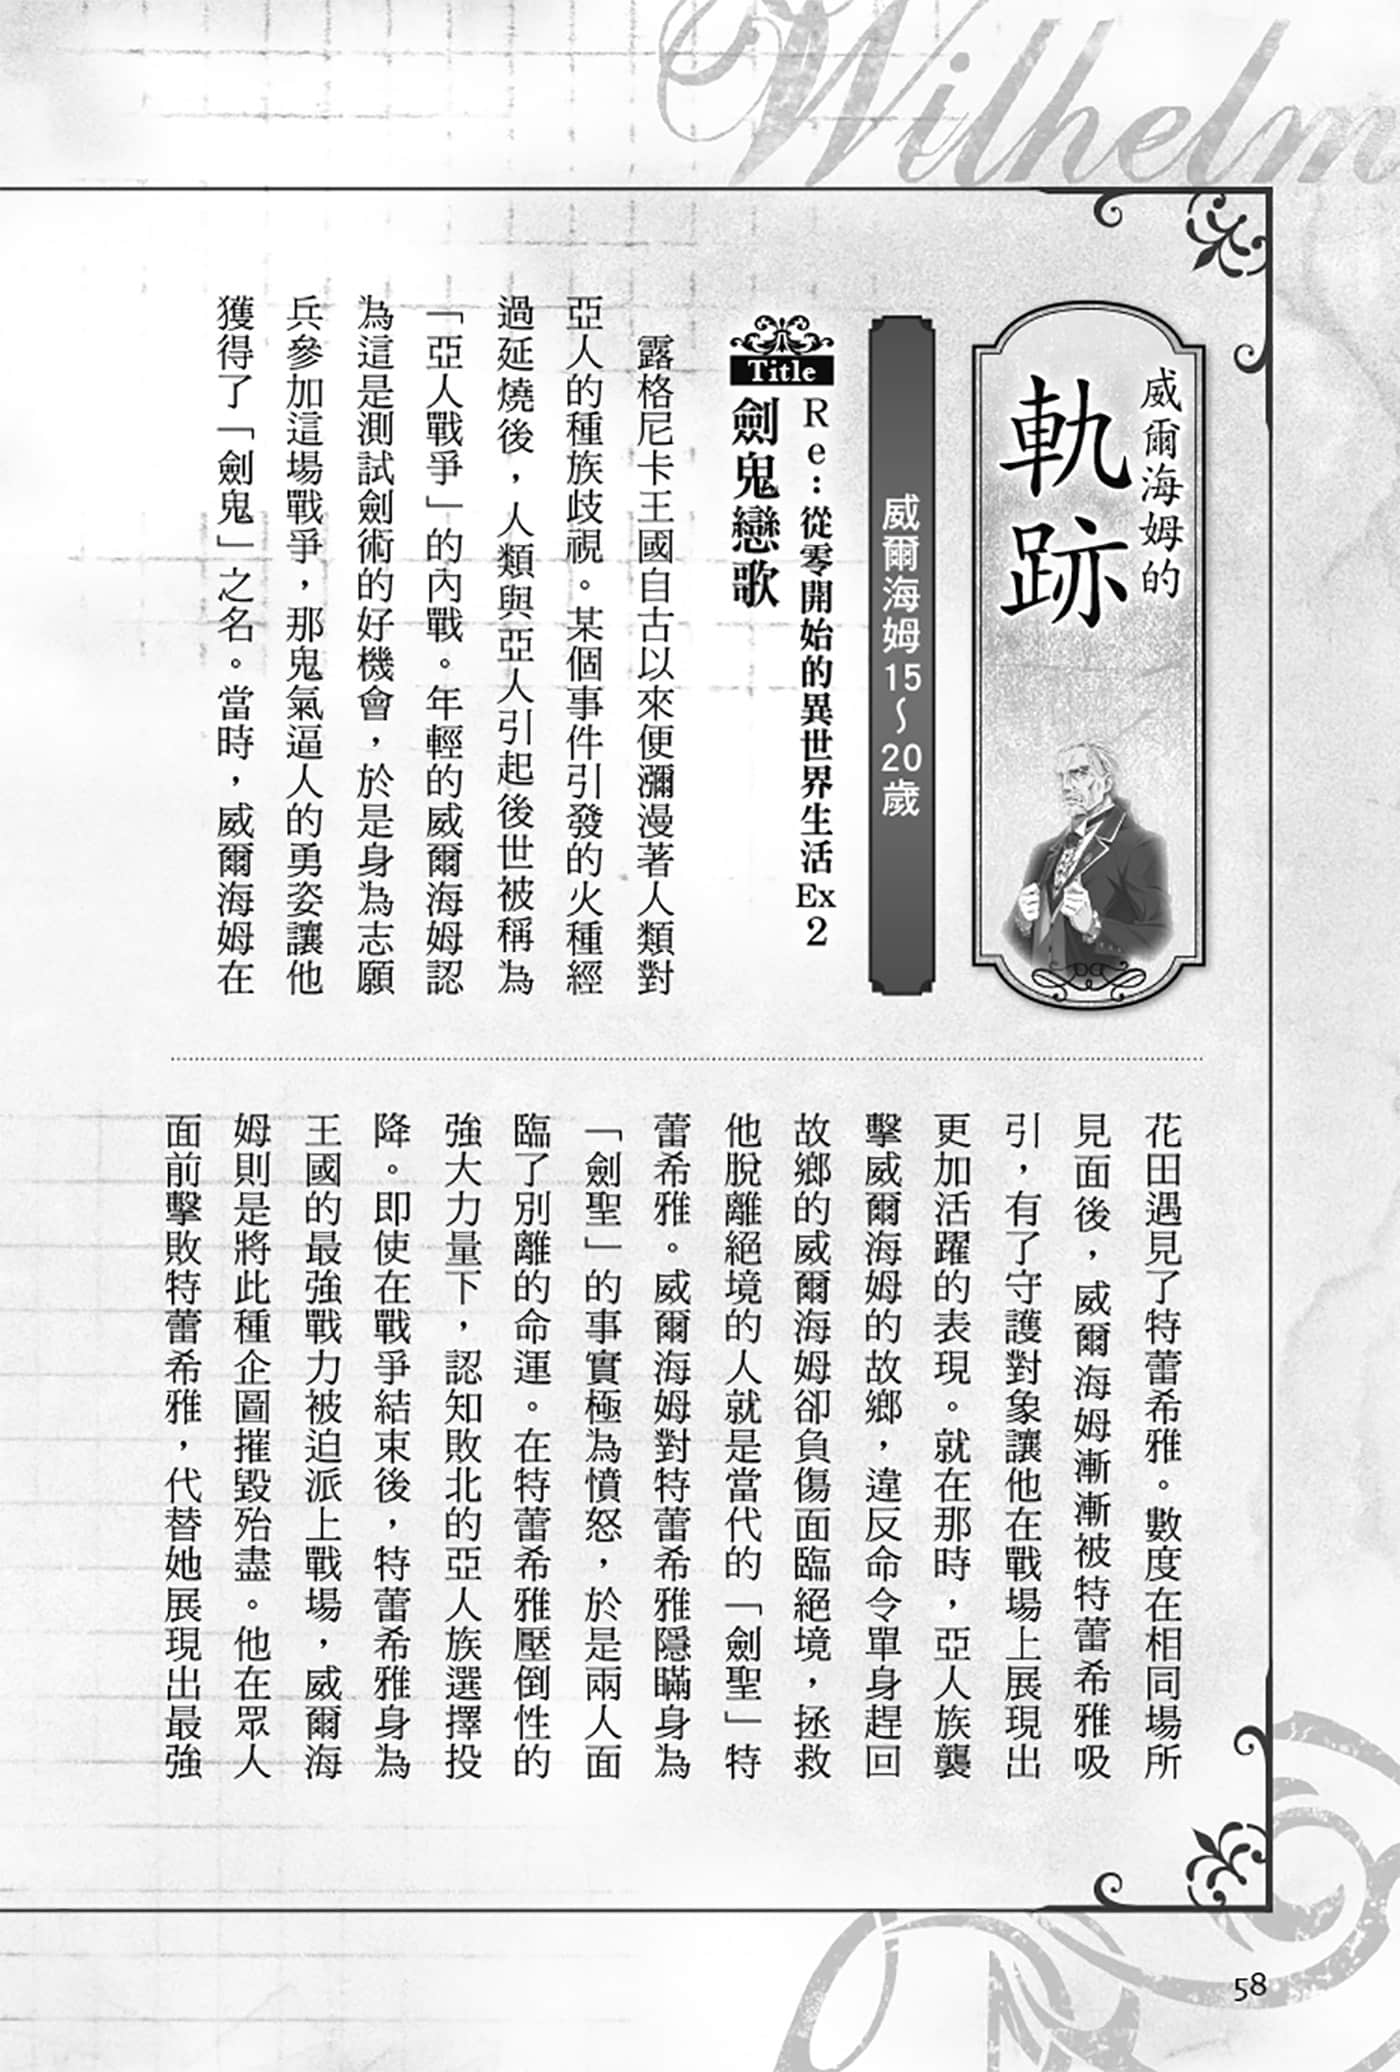 Wilhelm
威爾海姆的
軌跡
威爾海姆15～20歲
Title
Re：從零開始的異世界生活Ex2
劍鬼戀歌
露格尼卡王國自古以來便瀰漫著人類對
亞人的種族歧視。某個事件引發的火種經
過延燒後，人類與亞人引起後世被稱為
「亞人戰爭」的內戰。年輕的威爾海姆認
為這是測試劍術的好機會，於是身為志願
兵參加這場戰爭，那鬼氣逼人的勇姿讓他
獲得了「劍鬼」之名。當時，威爾海姆在
花田遇見了特蕾希雅。數度在相同場所
見面後，威爾海姆漸漸被特蕾希雅吸
引，有了守護對象讓他在戰場上展現出
更加活躍的表現。就在那時，亞人族襲
擊威爾海姆的故鄉，違反命令單身趕回
故鄉的威爾海姆卻負傷面臨絕境，拯救
他脫離絕境的人就是當代的「劍聖」特
蕾希雅。威爾海姆對特蕾希雅隱瞞身為
「劍聖」的事實極為憤怒，於是兩人面
臨了別離的命運。在特蕾希雅壓倒性的
強大力量下，認知敗北的亞人族選擇投
降。即使在戰爭結束後，特蕾希雅身為
王國的最強戰力被迫派上戰場，威爾海
姆則是將此種企圖摧毀殆盡。他在眾人
面前擊敗特蕾希雅，代替她展現出最強
58